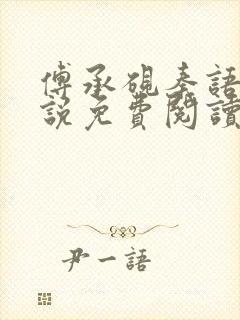 傅承硯秦語
說免費閱讀
尹一語